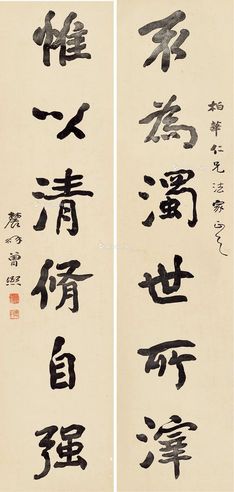 柏華仁兄法家正之
不為濁世所滓
惟以清脩自强
農髯曾熙